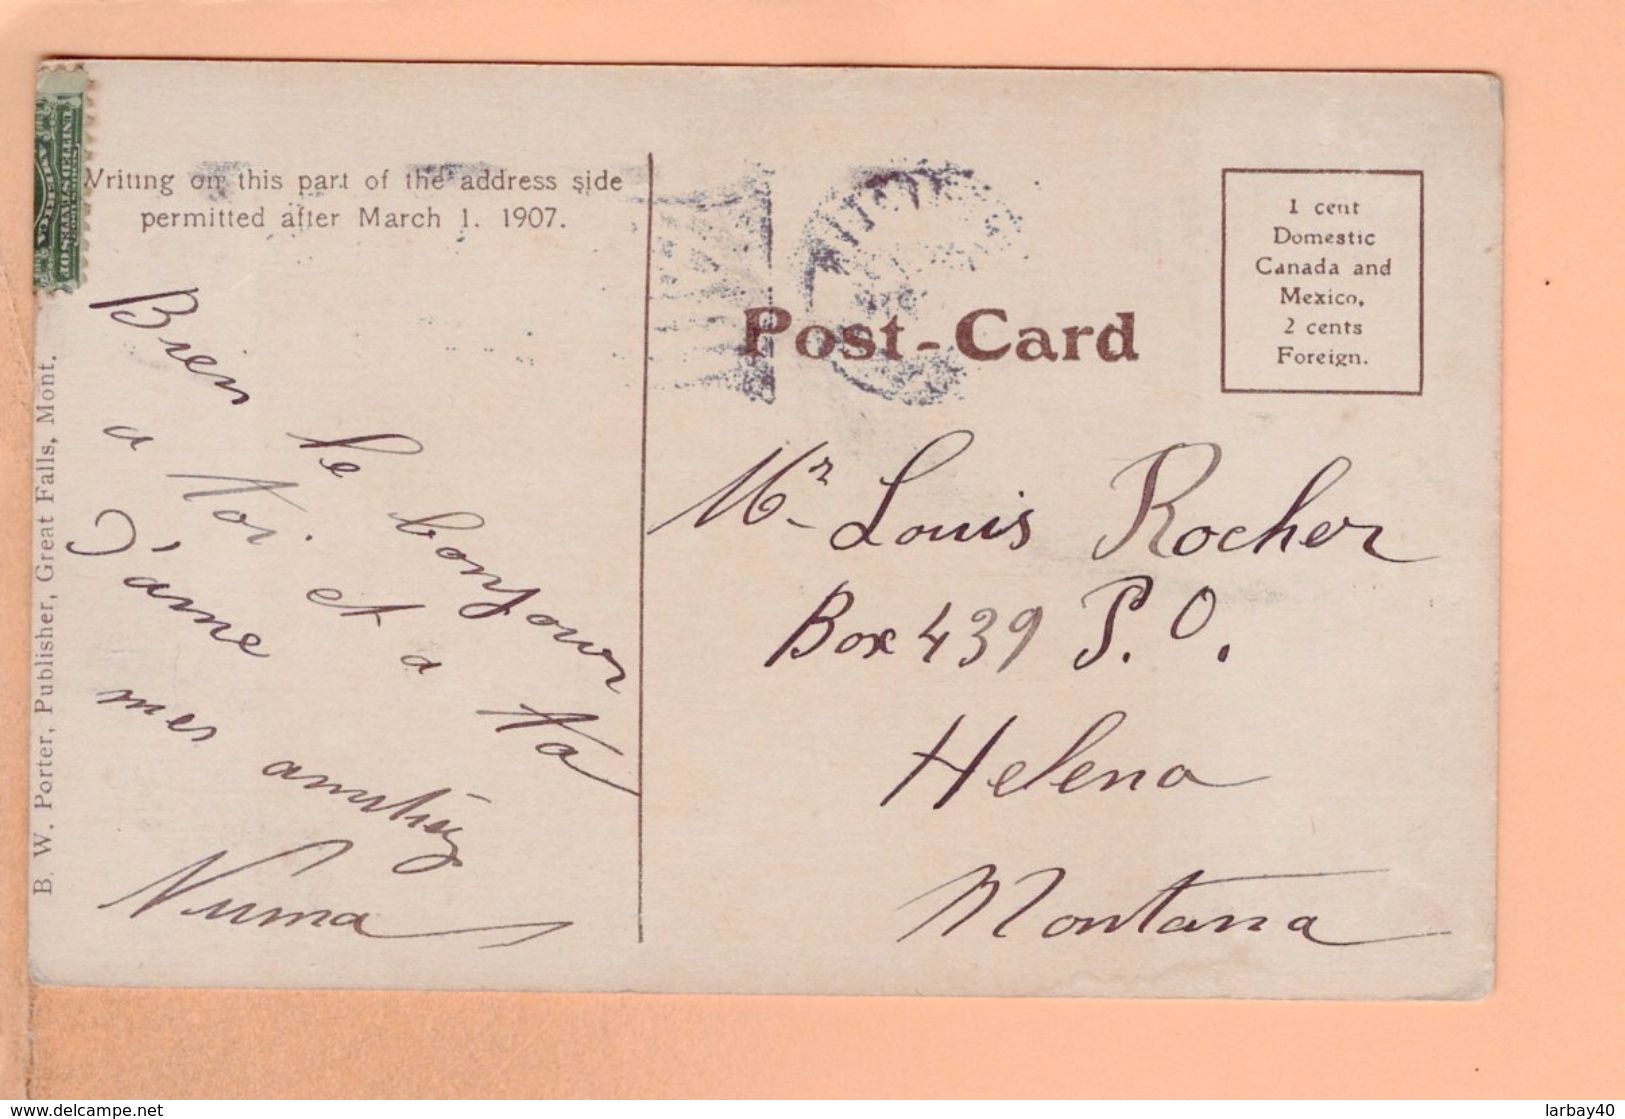 Writing on this part of the address side
permitted after March 1. 1907.
Bien le bonjour
a toi et a ta
Dame
mes amitiés
Numa
B. W. Porter, Publisher, Great Falls, Mont.
Post-Card
1 cent
Domestic
Canada and
Mexico,
2 cents
Foreign.
Mr Louis Rocher
Box 439 P.O.
Helena
Montana
www.delcampe.net
larbay40